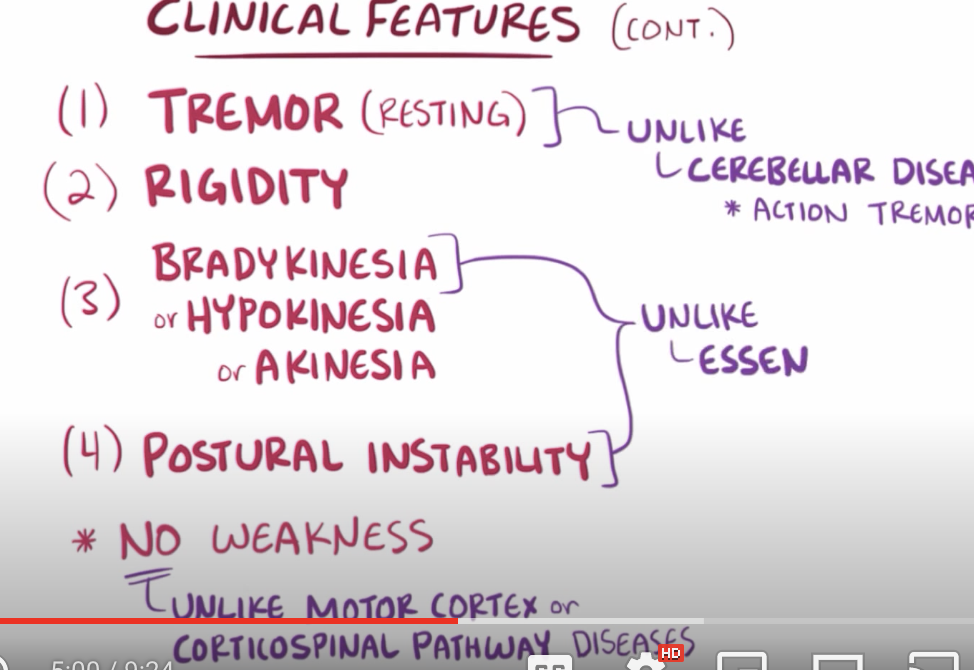 CLINICAL FEATURES (CONT.)
(1) TREMOR (RESTING)
UNLIKE
CEREBELLAR DISEA
* ACTION TREMOR
(2) RIGIDITY
(3) BRADYKINESIA
or HYPOKINESIA
or AKINESIA
UNLIKE
ESSEN
(4) POSTURAL INSTABILITY
* NO WEAKNESS
UNLIKE MOTOR CORTEX or
CORTICOSPINAL PATHWAY DISEASES
5:00 / 9:24
HD